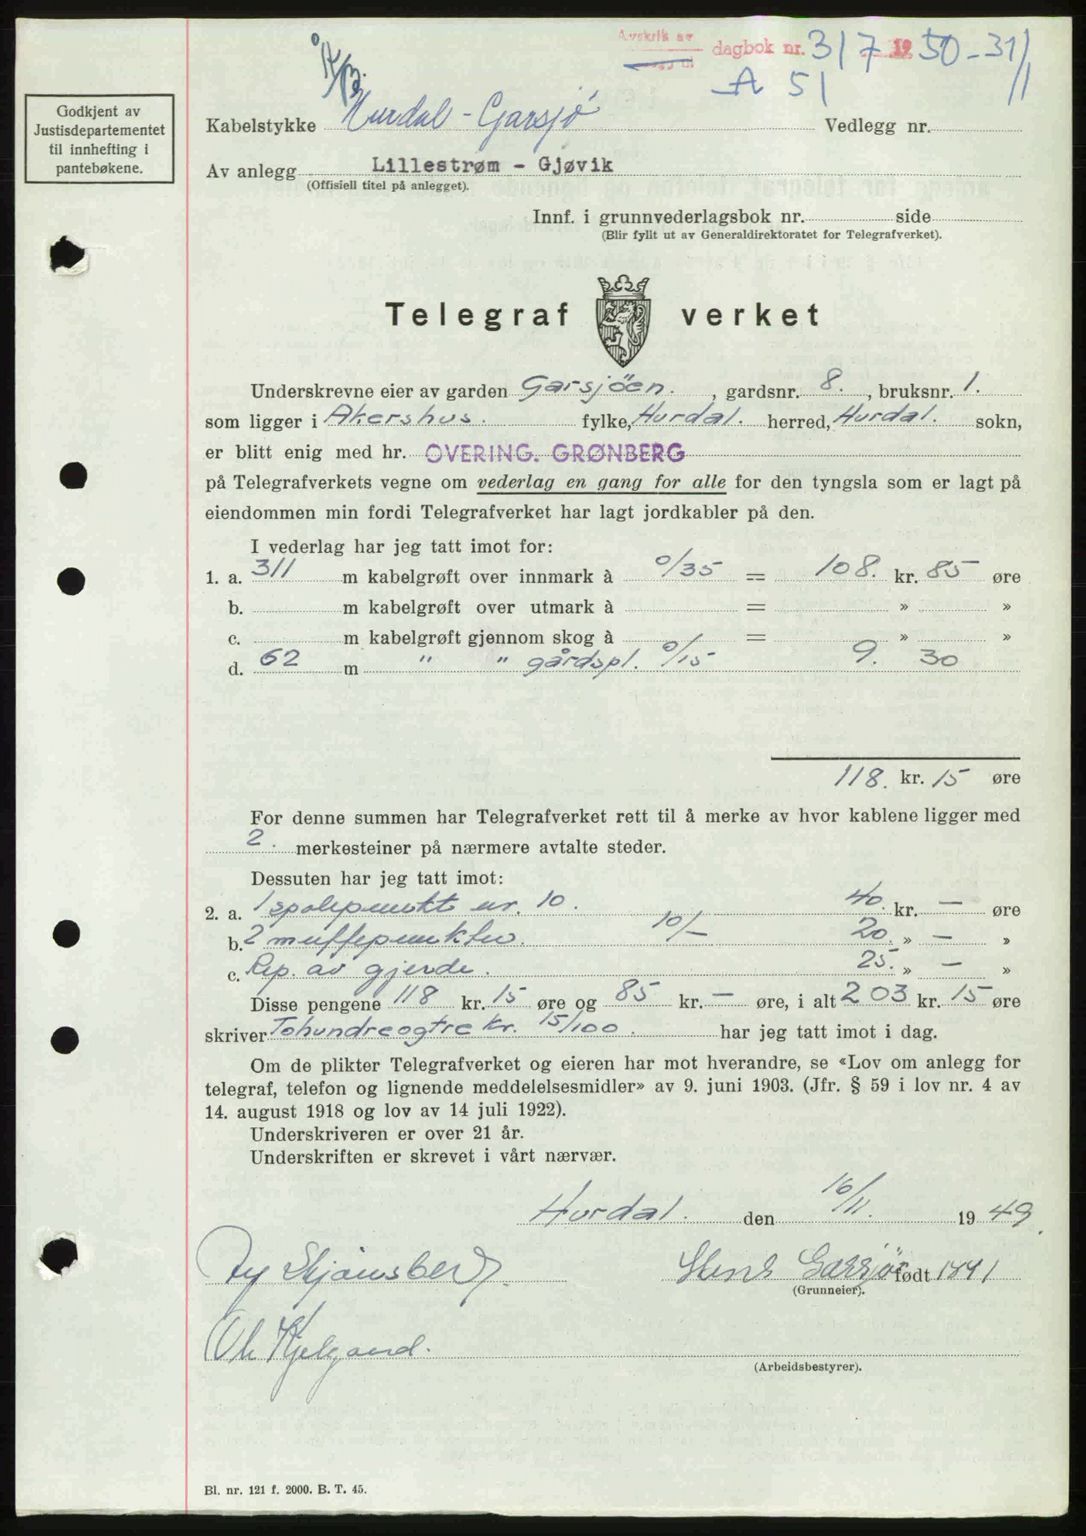 Avskrift av dagbok nr. 317 1950 - 31/1
A 51
Godkjent av
Justisdepartementet
til innhefting i
pantebøkene.
Kabelstykke Hurdal - Garsjø Vedlegg nr.
Av anlegg Lillestrøm - Gjøvik
(Offisiell titel på anlegget).
Innf. i grunnvederlagsbok nr. side
(Blir fyllt ut av Generaldirektoratet for Telegrafverket).
Telegraf verket
Underskrevne eier av garden Garsjöen. , gardsnr. 8. , bruksnr. 1.
som ligger i Akershus. fylke, Hurdal. herred, Hurdal. sokn,
er blitt enig med hr. OVERING. GRØNBERG
på Telegrafverkets vegne om vederlag en gang for alle for den tyngsla som er lagt på
eiendommen min fordi Telegrafverket har lagt jordkabler på den.
I vederlag har jeg tatt imot for:
1. a. 311 m kabelgrøft over innmark à 0/35 = 108. kr. 85 øre
b. m kabelgrøft over utmark à = » »
c. m kabelgrøft gjennom skog à = » »
d. 62 m " " gårdspl. 0/15 9. 30
118. kr. 15 øre
For denne summen har Telegrafverket rett til å merke av hvor kablene ligger med
2. merkesteiner på nærmere avtalte steder.
Dessuten har jeg tatt imot:
2. a. 1 spolepunkt nr. 10. 40. kr. — øre
b. 2 muffepunkter. 10/- 20. » — »
c. Rep. av gjerde. 25. » — »
Disse pengene 118 kr. 15 øre og 85 kr. — øre, i alt 203 kr. 15 øre
skriver Tohundreogtre kr. 15/100. har jeg tatt imot i dag.
Om de plikter Telegrafverket og eieren har mot hverandre, se «Lov om anlegg for
telegraf, telefon og lignende meddelelsesmidler» av 9. juni 1903. (Jfr. § 59 i lov nr. 4 av
14. august 1918 og lov av 14 juli 1922).
Underskriveren er over 21 år.
Underskriften er skrevet i vårt nærvær.
Hurdal. den 16/11. 1949.
Skjønsberg. Hans Garsjø født 1891
(Grunneier).
Ole Hjelgaard.
(Arbeidsbestyrer).
Bl. nr. 121 f. 2000. B. T. 45.